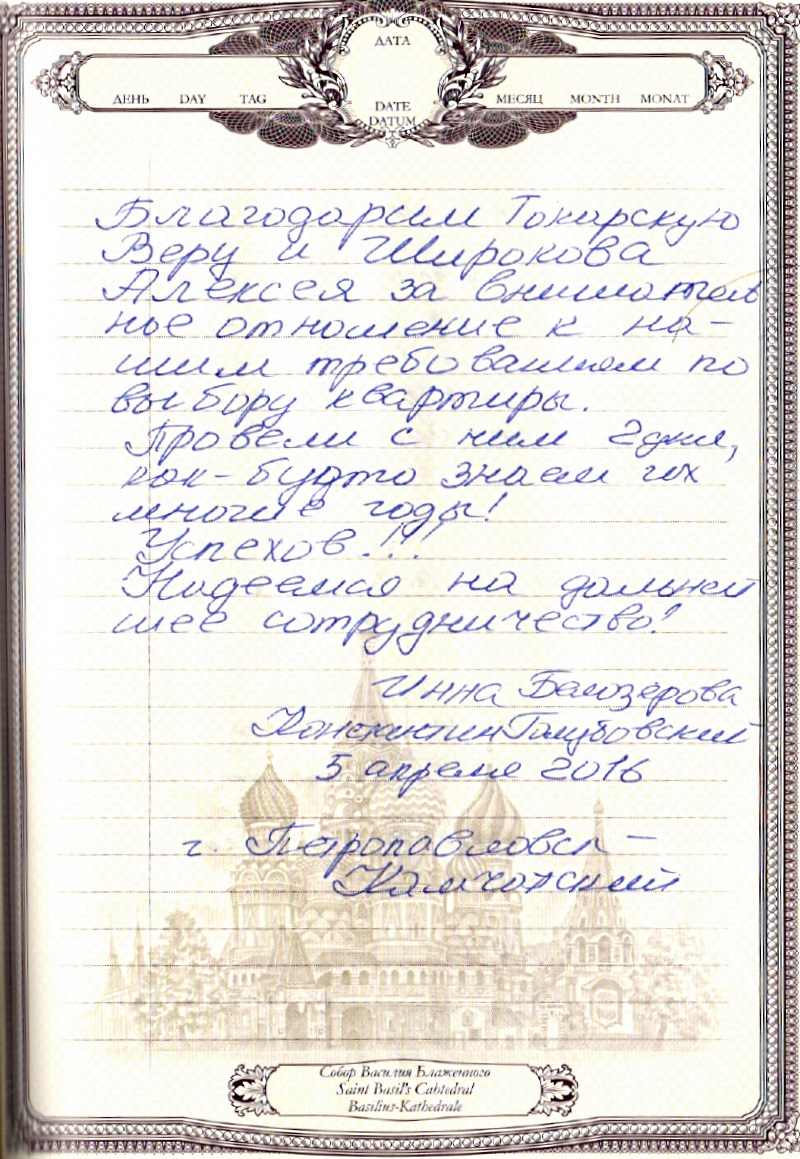 ДАТА
ДЕНЬ DAY TAG
МЕСЯЦ MONTH MONAT
DATE
DATUM
Благодарим Токарскую
Веру и Широкова
Алексея за вниматель
ное отношение к на-
шим требованиям по
выбору квартиры.
Провели с ним 2 дня,
как-будто знаем их
многие годы!
Успехов!!!
Надеемся на дальней
шее сотрудничество!
Инна Белозёрова
Константин Голубовский
5 апреля 2016
г. Петропавловск-
Камчатский
Собор Василия Блаженного
Saint Basil's Cahtedral
Basilius-Kathedrale